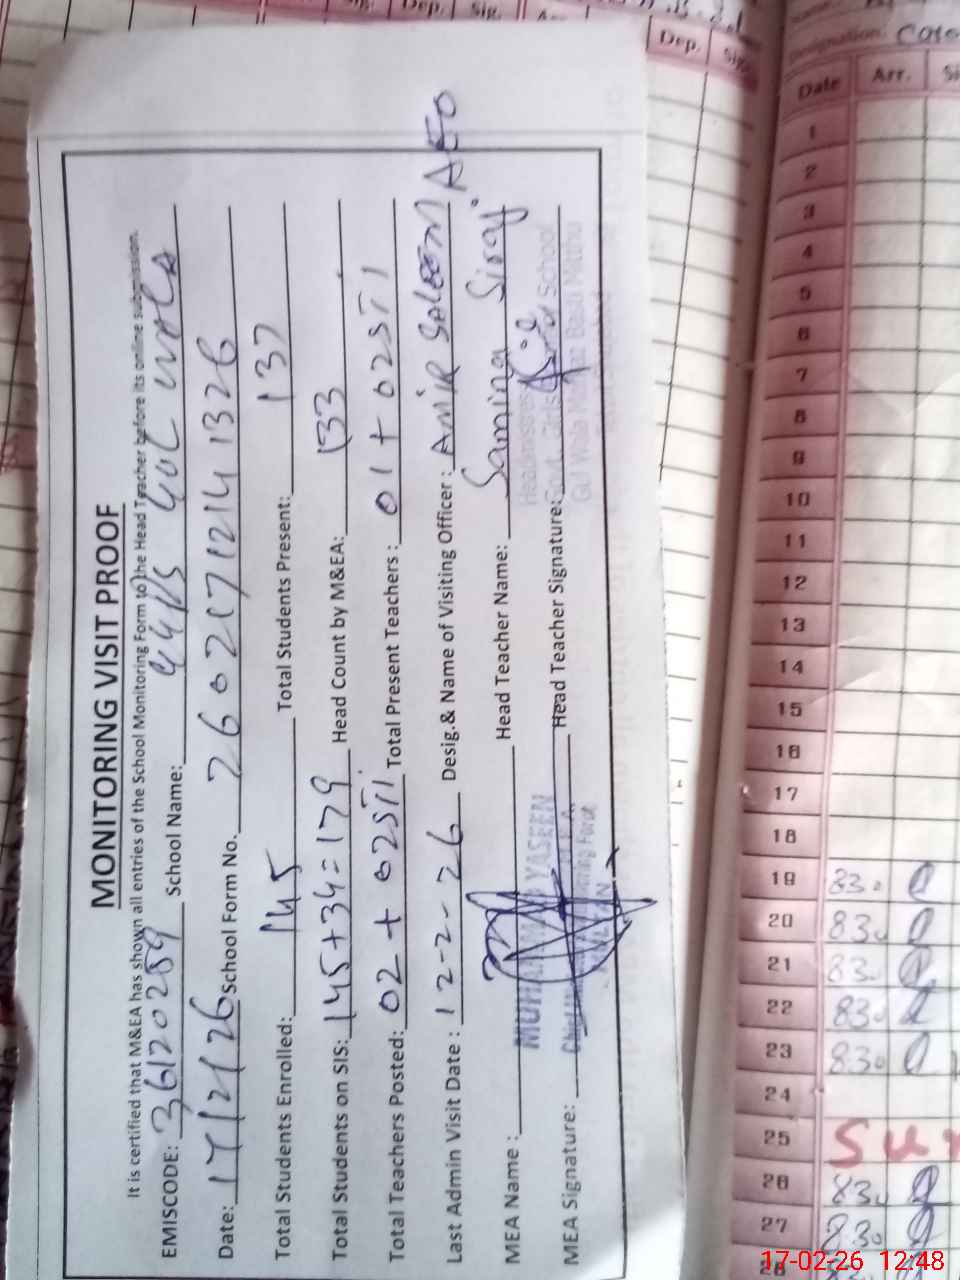 MONITORING VISIT PROOF
It is certified that M&EA has shown all entries of the School Monitoring Form to the Head Teacher before its online submission.
EMISCODE: 36120289 School Name: GGPS GUL WALA
Date: 17/2/26 School Form No. 260217121413 26
Total Students Enrolled: 145 Total Students Present: 137
Total Students on SIS: 145+34=179 Head Count by M&EA: 133
Total Teachers Posted: 02 + 02STI Total Present Teachers : 01 + 02STI
Last Admin Visit Date : 12-2-26 Desig.& Name of Visiting Officer : AMIR SALEEM AEO
MEA Name : MUHAMMAD YASEEN Head Teacher Name: Samina Siraj
MEA Signature: Head Teacher Signature:
Headmistress
Govt. Girls School
Gul Wala Mumtaz Basti Mitthu
Dep. Sig.
Dep. Sig.
Designation:
Date Arr.
1
2
3
4
5
6
7
8
9
10
11
12
13
14
15
16
17
18
19 83.
20 83.
21 83.
22 83.
23 83.
24
25 Sun
26 83.
27 83.
28
17-02-26 12:48